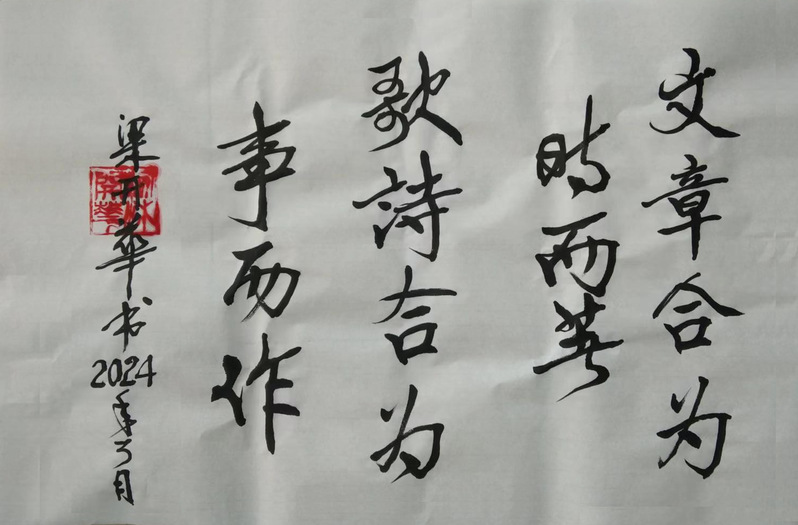 文章合为
时而著
歌詩合为
事而作
梁开華书
2024年6月